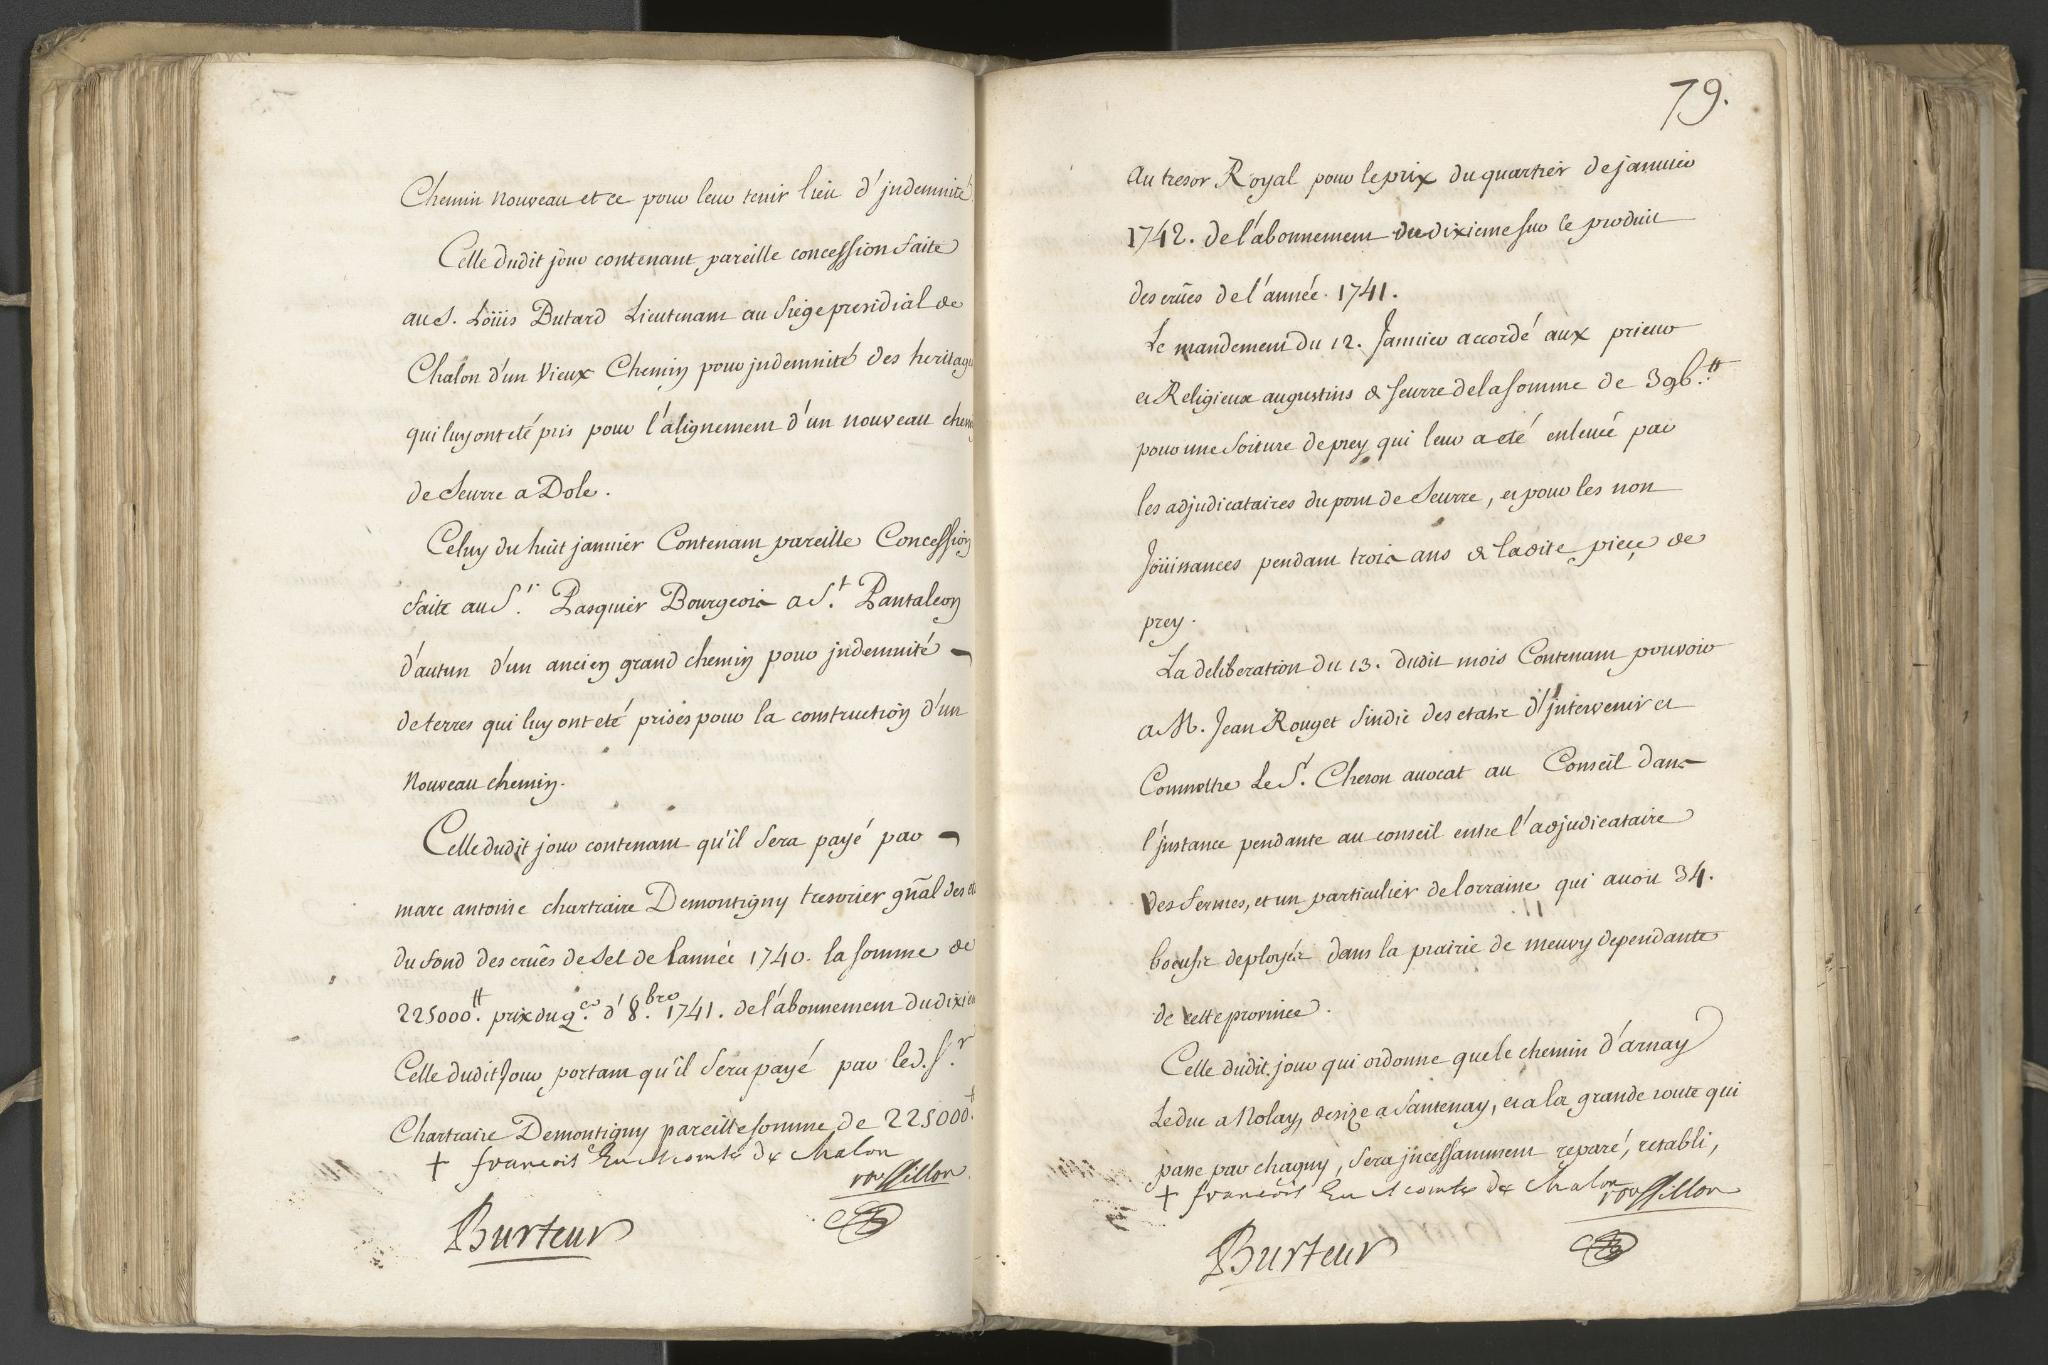 Chemin nouveau et ce pour leur tenir lieu d'jndemnité.
Celle dudit jour contenant pareille concession faite
au S. Loüis Butard Lieutenant au siége presidial de
Chalon d'un vieux Chemin pour jndemnité des heritag
qui luy ont eté pris pour l'alignement d'un nouveau chem
de Seurre a Dole.
Celuy du huit janvier Contenant pareille Concession
faite au S.r Pasquier Bourgeois a S.t Pantaleon
d'autun d'un ancien grand chemin pour jndemnité
de terres qui luy ont eté prises pour la construction d'un
nouveau chemin.
Celle dudit jour contenant qu'il sera payé par
marc antoine chartraire Demontigny tresorier gñal des et
du fond des crûes de sel de lannée 1740. la somme de
225000.tt prix du q.er d'8.bre 1741. de l'abonnement du dixie
Celle dudit jour portant qu'il sera payé par led. S.r
Chartraire Demontigny pareille somme de 225000.tt
+ francois Ev comte de chalon
rousillon
Burteur
79.
au tresor Royal pour le prix du quartier de janvier
1742. de l'abonnement du dixieme sur le produit
des crûes de l'année. 1741.
Le mandement du 12. Janvier accordé aux prieur
et Religieux augustins de seurre de la somme de 396.tt
pour une soiture de prey qui leur a eté enlevée par
les adjudicataires du pont de Seurre, et pour les non
Joüissances pendant trois ans de ladite piece de
prey.
La deliberation du 13. dudit mois Contenant pouvoir
a M. Jean Rouget sindic des etats d'jntervenir et
Commettre Le S.r Cheron avocat au Conseil dans
l'jnstance pendante au conseil entre l'adjudicataire
des fermes, et un particulier de lorraine qui avoit 34.
boeufs deployés dans la prairie de meuvy dependante
de cette province.
Celle dudit jour qui ordonne que le chemin d'arnay
Leduc a Nolay, desize a Santenay, et a la grande route qui
passe par chagny, sera jncessamment reparé, retabli,
+ francois Ev comte de chalon
rousillon
Burteur